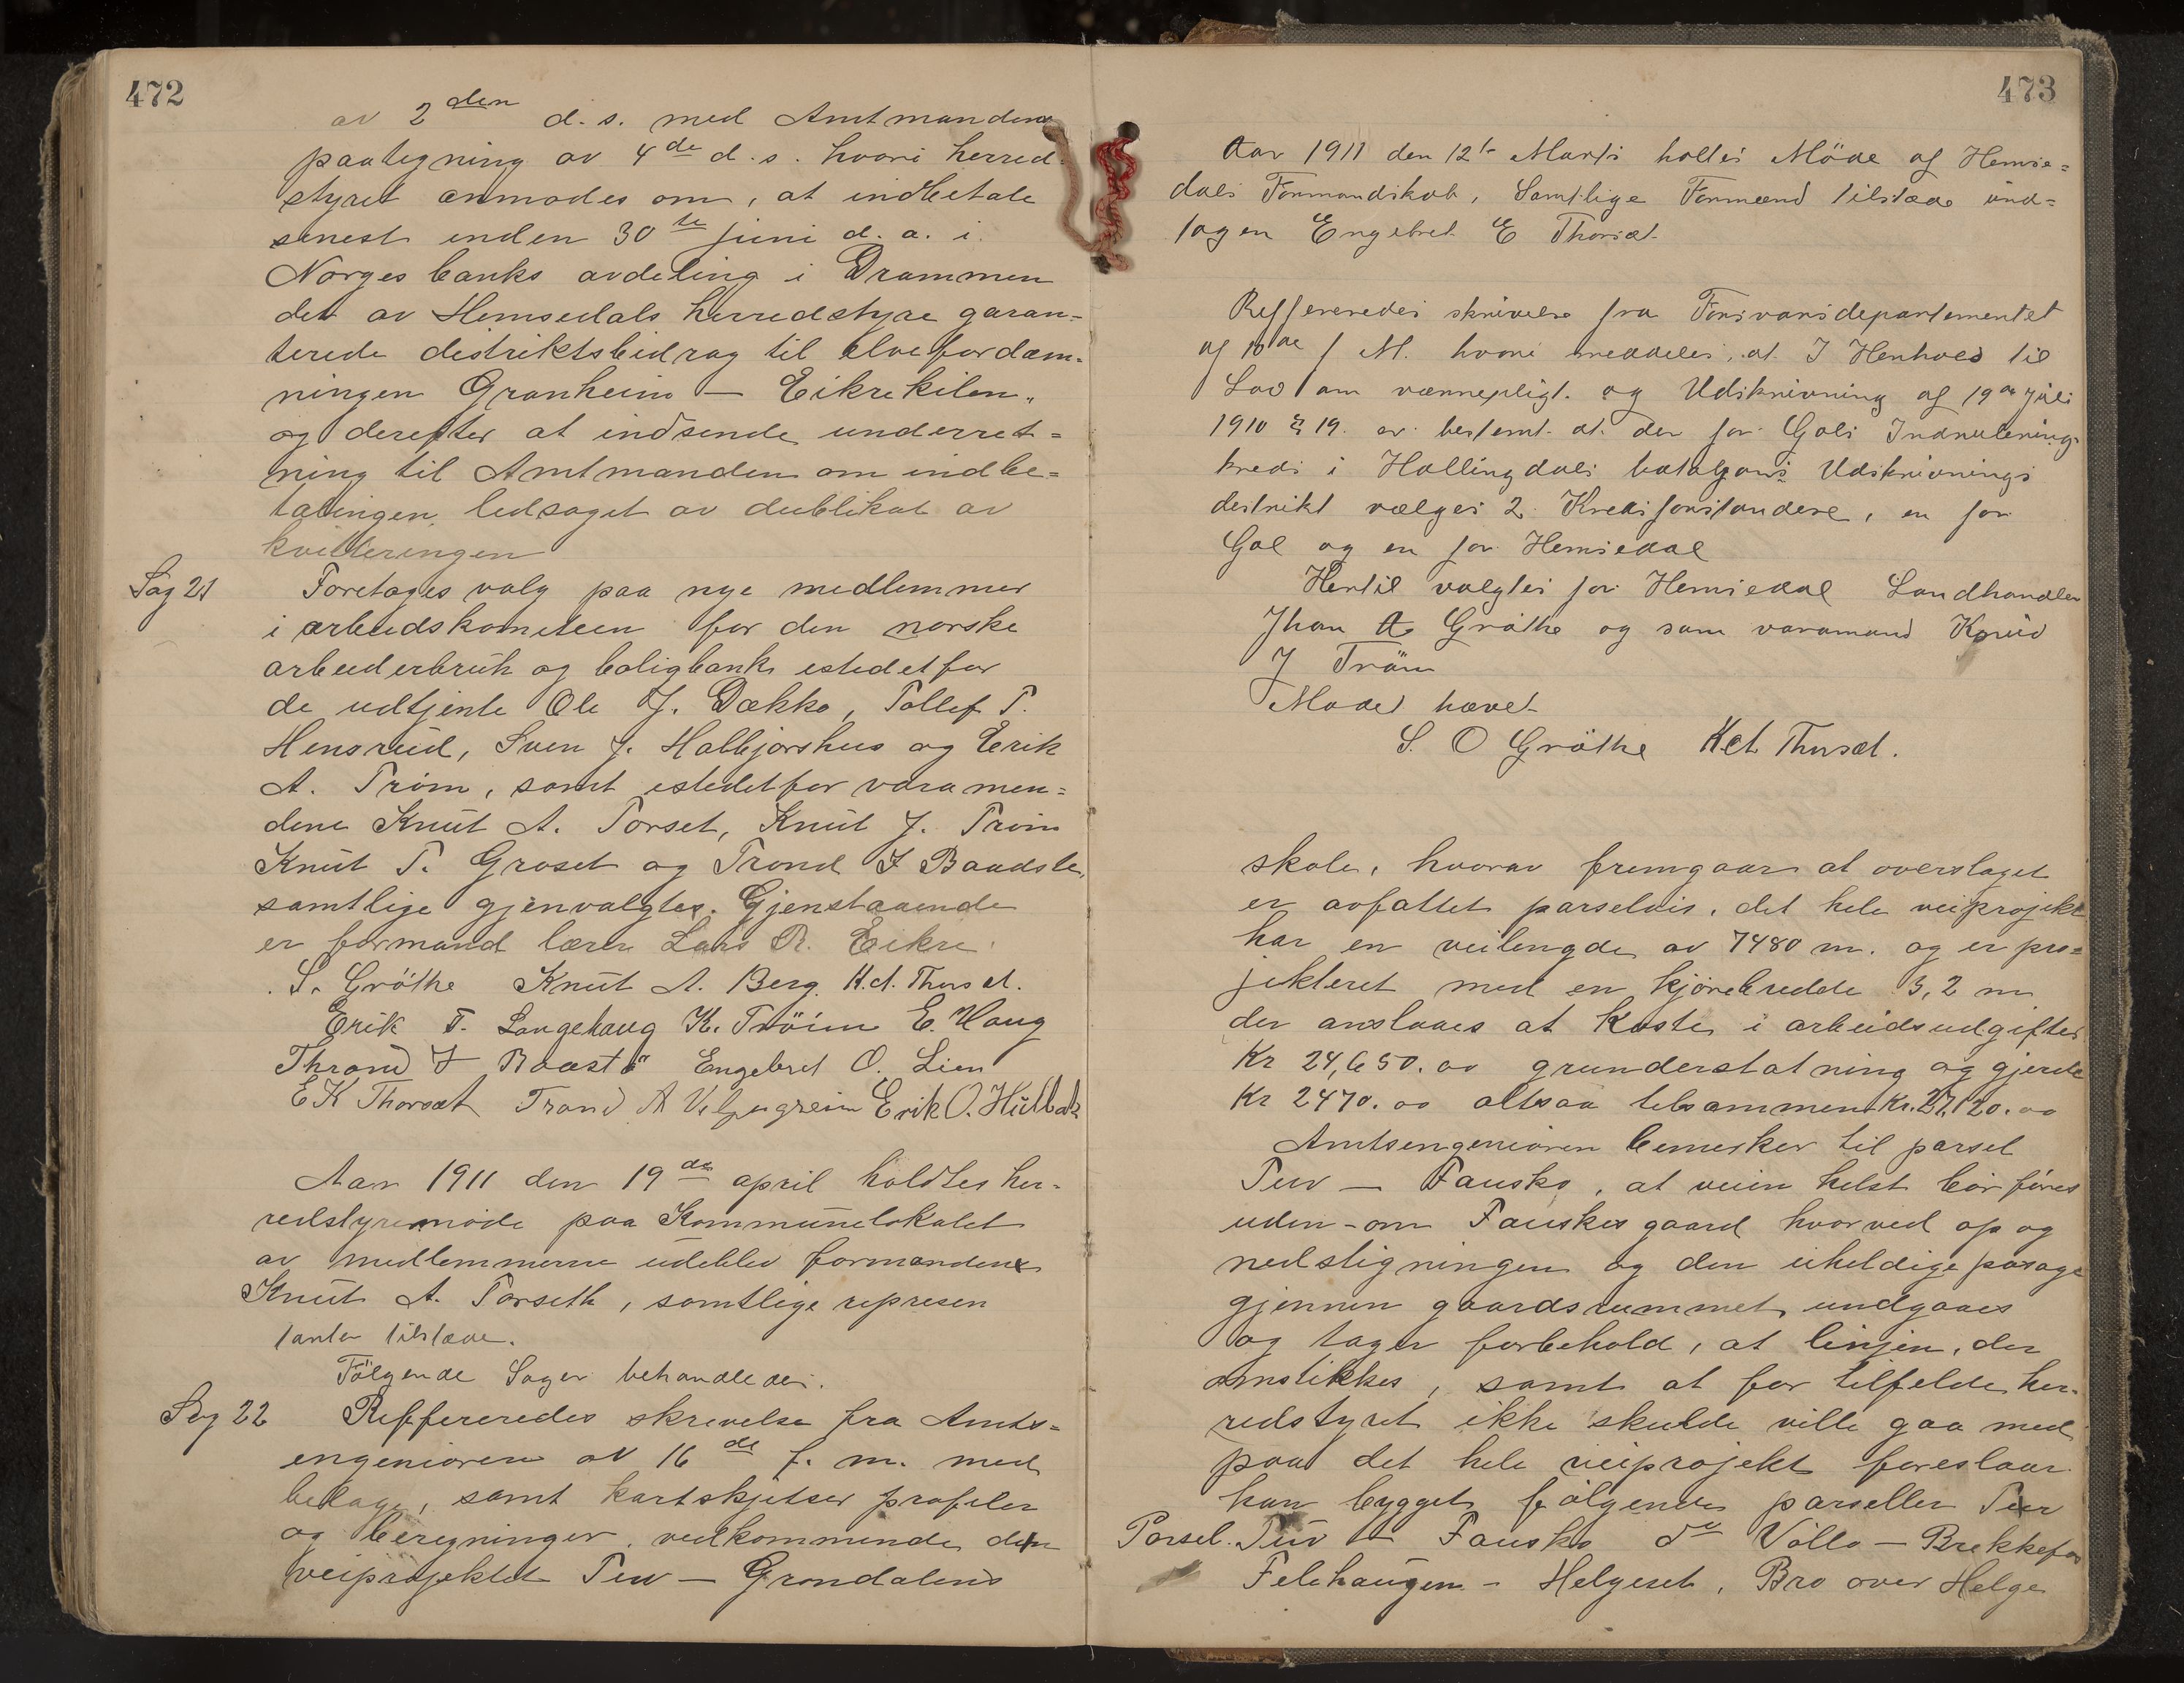 472
av 2den d.s. med Amtmandens
paategning av 4de d.s. hvori herred-
styret anmodes om, at indbetale
senest inden 30te juni d.a. i
Norges banks avdeling i Drammen
det av Hemsedals herredstyre garan=
terede distriktsbidrag til elvefordæm-
ningen Granheim — Eikrekilen,
og derefter at indsende underret=
ning til Amtmanden om indbe=
talingen, ledsaget av dublikat av
kvitteringen
Sag 21 Foretages valg paa nye medlemmer
i arbeidskomiteen for den norske
arbeiderbruk og boligbank istedetfor
de udtjente Ole J. Dækko, Tollef T.
Hensrud, Sven J. Halbjorshus og Erik
A. Trøim, samt istedetfor varamen=
dene Knut A. Torset, Knut J. Trøim
Knut T. Groset og Trond I Baadstø,
samtlige gjenvalgtes. Gjenstaaende
er formand lærer Lars R. Eikre.
S. Gröthe Knut A. Berg. K.A. Thorset.
Erik T. Langehaug K. Tröim E. Haug
Thrond I Baastö Engebret O. Lien
E K Thorsæt Trond A Erik O. Hulbak
Aar 1911 den 19de april holdtes her-
redstyremøde paa Kommunelokalet
av medlemmerne udeblev formanden
Knut A. Torseth, samtlige represen
tanter tilstæde.
Fölgende Sager behandledes.
Sag 22 Reffereredes skrivelse fra Amts=
engeniøren av 16de f. m. med
belage, samt kartskjetser profiler
og beregninger, vedkommende den
veiprojektet Tuv — Grøndalens
473
Aar 1911 den 12te Marts holtes Möde af Hemse=
dals Formandskab, Samtlige Formænd tilstæde und=
tagen Engebret E Thorset
Reffereredes skrivelse fra Forsvarsdepartementet
af 10de f M. hvori meddeles, at I Henhold til
Lov om værnepligt og Udskrivning af 19de juli
1910 § 19. er bestemt at der for Gols Indrulerings
kreds i Hallingdals bataljons Udskrivnings
destrikt vælges 2 Kredsforstandere, en for
Gol og en for Hemsedal
Hertil valgtes for Hemsedal Landhandler
Jhon A Gröthe og som varamand Knud
J Tröim
Mödet hævet
S. O Gröthe K A Thorset.
skole, hvorav fremgaar at overslaget
er avfattet parselvis, det hele veiprojekt
har en veilengde av 7480 m. og er pro=
jekteret med en kjørebredde 3,2 m
der anslaaes at koste i arbeidsudgifter
Kr 24,650.00 grunderstatning og gjerde
Kr 2470.00 altsaa tilsammen Kr. 27,120.00
Amtsengeniøren bemerker til parsel
Tuv — Fausko, at veien helst bør føres
uden-om Fauskes gaard hvorved op og
nedstigningen og den uheldige pasage
gjennem gaardsrummet undgaaes
og tager forbehold, at linjen, der
omstikkes, samt at for tilfelde her-
redstyret ikke skulde ville gaa med
paa det hele veiprojekt foreslaar
han bygget følgende parseller Tuv
Parsel. Tuv — Fausko do Vøllo — Brekkefos
Felehaugen - Helgeset, Bro over Helge